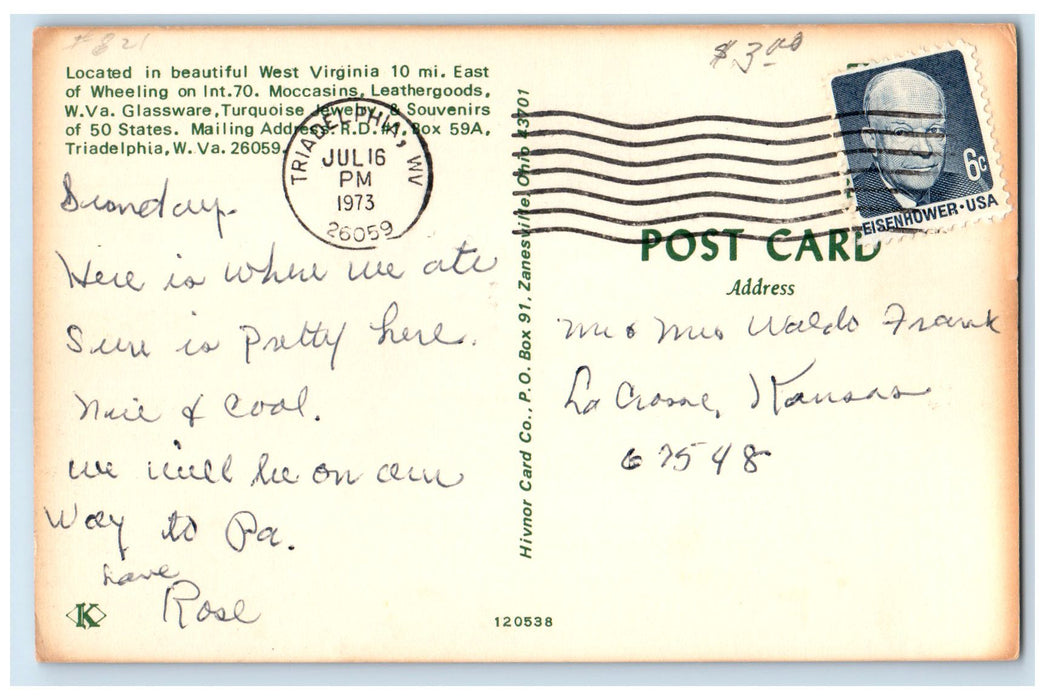 # 821
$3.00
Located in beautiful West Virginia 10 mi. East
of Wheeling on Int.70. Moccasins, Leathergoods,
W.Va. Glassware, Turquoise Jewelry, & Souvenirs
of 50 States. Mailing Address: R.D.#1, Box 59A,
Triadelphia, W. Va. 26059.
TRIADELPHIA, WV
JUL 16
PM
1973
26059
6c
EISENHOWER·USA
Sunday.
Here is where we ate
Sure is pretty here.
Nice & cool.
we will be on our
way to Pa.
Love
Rose
K
Hivnor Card Co., P.O. Box 91, Zanesville, Ohio 43701
POST CARD
Address
Mr & Mrs Waldo Frank
La Crosse, Kansas
67548
120538